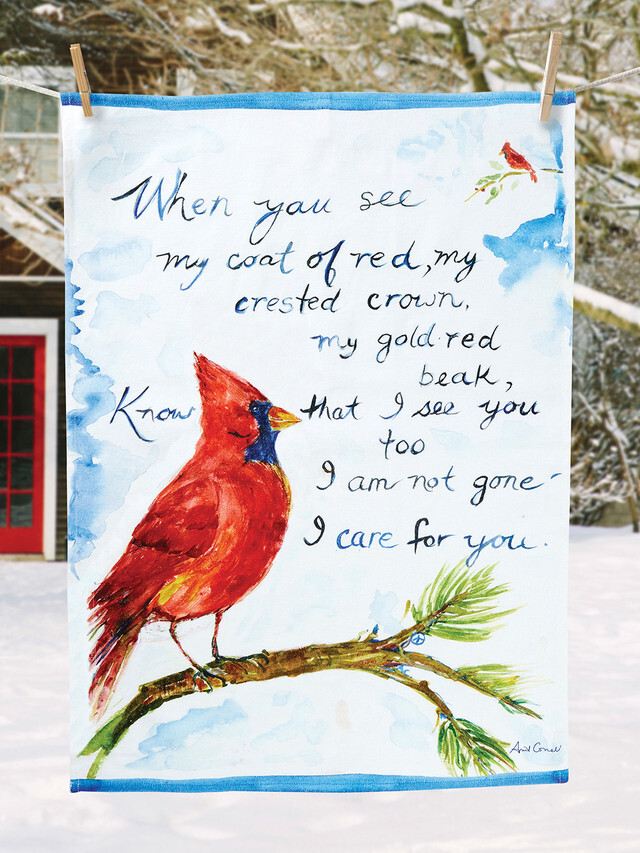 When you see
my coat of red, my
crested crown,
my gold-red
beak,
Know that I see you
too
I am not gone-
I care for you.